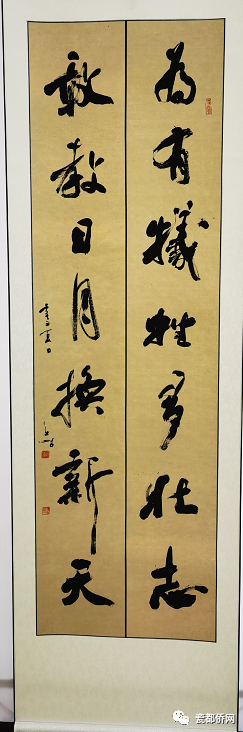 为有犠牲多壮志
敢教日月换新天
瓷都侨网